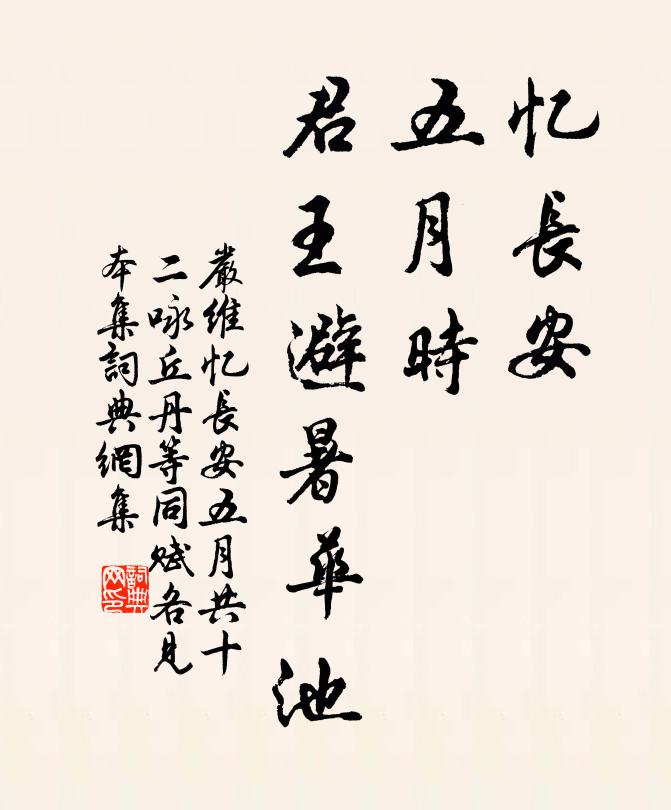 忆長安
五月時
君王避暑華池
嚴維忆長安五月共十
二咏丘丹等同赋各見
本集詞典網集
詞典网印